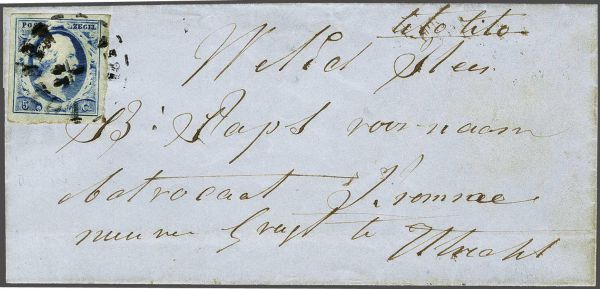 POST ZEGEL
5 C.
cito cito
WelEd Heer
B: Paps voornaam
Advocaat Kromme
nieuwe Gragt te Utrecht